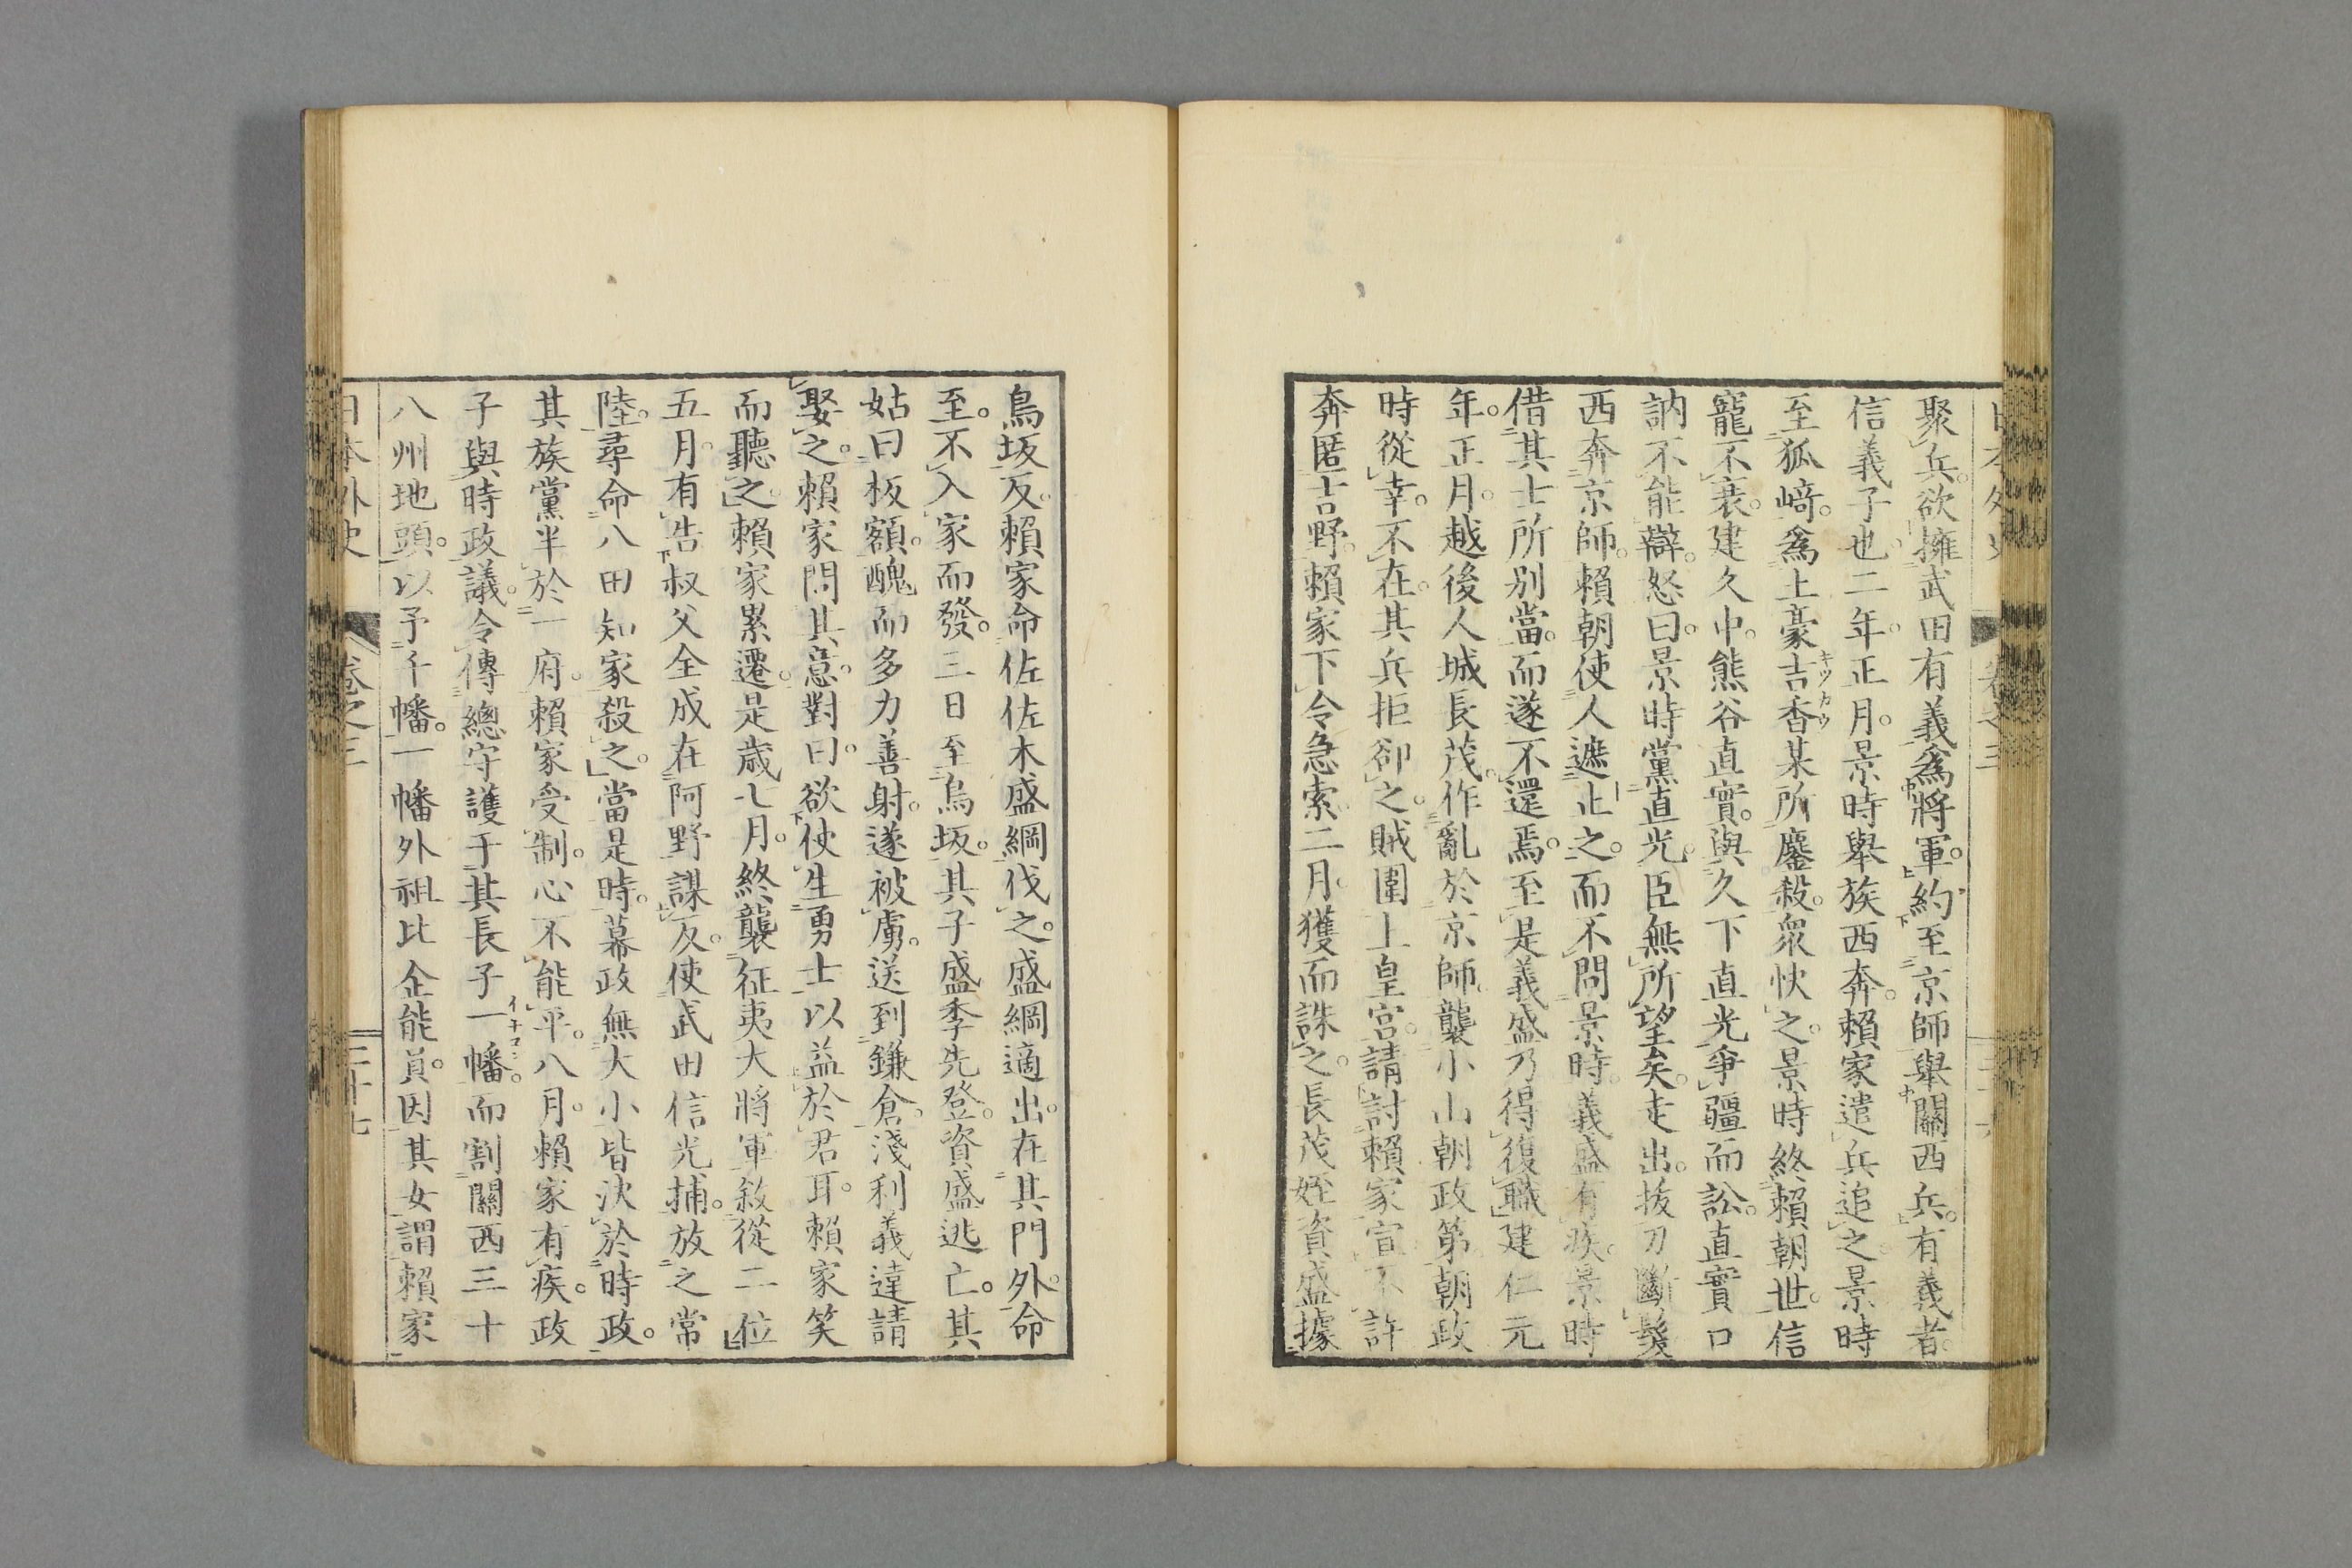 聚兵。欲擁武田有義爲將軍。約至京師舉關西兵。有義者。
信義子也。二年。正月。景時舉族西奔。賴家遣兵追之。景時
至狐﨑。爲土豪吉香某所鏖殺。衆快之。景時終賴朝世。信
キツカウ
寵不衰。建久中。熊谷直實。與久下直光爭疆而訟。直實口
訥不能辯。怒曰。景時黨直光。臣無所望矣。走出。抜刀斷髮
西奔京師。賴朝使人遮止之。而不問景時。義盛有疾。景時
借其士所別當。而遂不還焉。至是義盛乃得復職。建仁元
年。正月。越後人城長茂。作亂於京師。襲小山朝政第。朝政
時從幸。不在。其兵拒卻之。賊圍上皇宮。請討賴家宣。不許
奔匿吉野。賴家下令急索。二月。獲而誅之。長茂姪資盛據
鳥坂反。賴家命佐佐木盛綱伐之。盛綱適出在其門外。命
至。不入家而發。三日至鳥坂。其子盛季先登。資盛逃亡。其
姑曰板額。醜而多力善射。遂被虜。送到鎌倉。淺利義遠請
娶之。賴家問其意。對曰。欲使生勇士以益於君耳。賴家笑
而聽之。賴家累遷。是歳七月。終襲征夷大將軍。敘從二位
五月。有告叔父全成在阿野謀反。使武田信光捕。放之常
陸。尋命八田知家殺之。當是時。幕政無大小皆決於時政。
其族黨半於一府。賴家受制。心不能平。八月。賴家有疾。政
子與時政議。令傳總守護于其長子一幡。而割關西三十
八州地頭。以予千幡。一幡外祖比企能員。因其女謂賴家
日本外史
卷之三
三十七